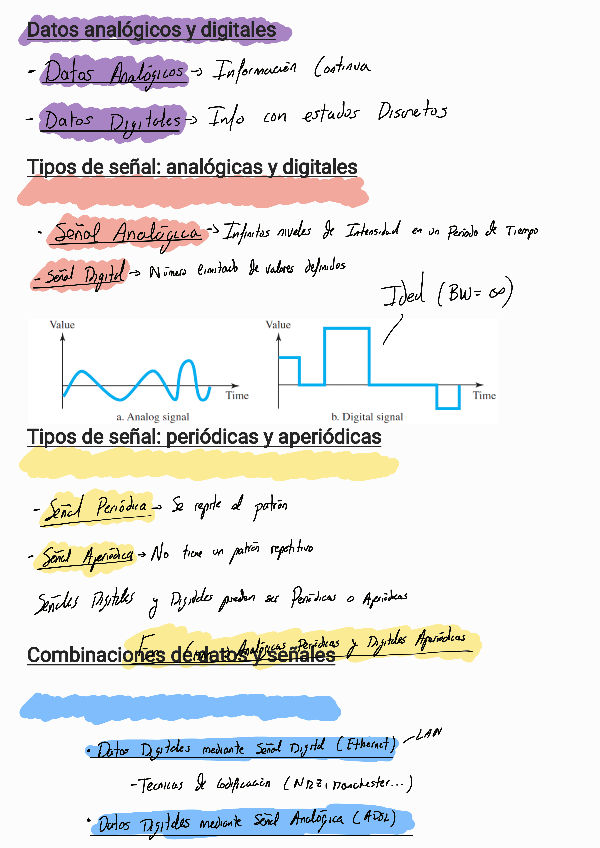 Datos analógicos y digitales
- Datos Analógicos → Información Continua
- Datos Digitales → Info con estados Discretos
Tipos de señal: analógicas y digitales
· Señal Analógica → Infinitos niveles de Intensidad en un Periodo de Tiempo
- Señal Digital → Número limitado de valores definidos
Ideal (BW = ∞)
Value Value
Time Time
a. Analog signal b. Digital signal
Tipos de señal: periódicas y aperiódicas
- Señal Periódica → Se repite el patrón
- Señal Aperiódica → No tiene un patrón repetitivo
Señales Digitales y Digitales pueden ser Periódicas o Aperiódicas
En → Analógicas Periódicas y Digitales Aperiódicas
Combinaciones de datos y señales
• Datos Digitales mediante Señal Digital (Ethernet) - LAN
- Tecnicas de Codificación (NRZ, manchester...)
• Datos Digitales mediante Señal Analógica (ADSL)